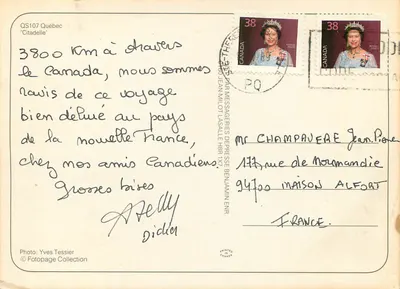 QS107 Québec
'Citadelle'
3800 km à travers
le Canada, nous sommes
ravis de ce voyage
bien délivré au pays
de la nouvelle France,
chez nos amis Canadiens.
Grosses bises
Didier
Photo: Yves Tessier
© Fotopage Collection
38
CANADA
38
CANADA
PQ
PAR MESSAGERIES DE PRESSE BENJAMIN ENR.
Mr CHAMPAVERE Jean Pierre
177, rue de Normandie
94700 MAISON ALFORT
FRANCE.